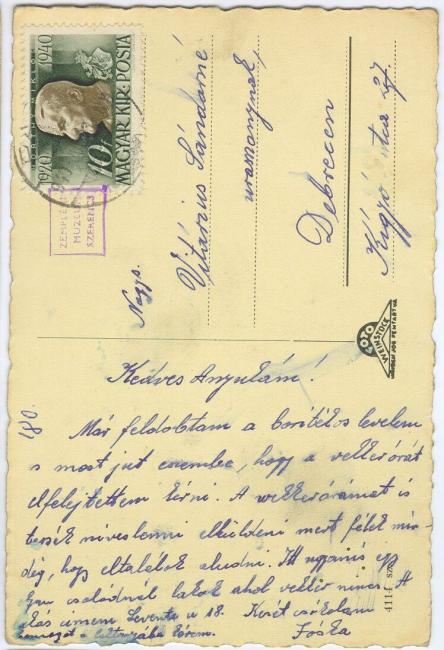 1920 HORTHY MIKLÓS 1940
10 f
MAGYAR KIR. POSTA
ZEMPLÉN
MÚZEUM
SZERENCS
Nagys.
Vitárius Sándorné
uraasszonynak,
Debrecen
Kígyó utca 27.
FOTO
WEINSTOCK
Kedves Anyukám!
180.
Már feldobtam a borítékos levelem
s most jut eszembe, hogy a vekkerórát
elfelejtettem kérni. A vekkerórámat is
tessék szíves lenni elküldeni mert félek min-
dég, hogy elalálok aludni. Itt ugyanis egy
családnál lakok ahol vekker nincs. A
címem Levente u 18. Kezét csókolom
Jóska
4114 sz.